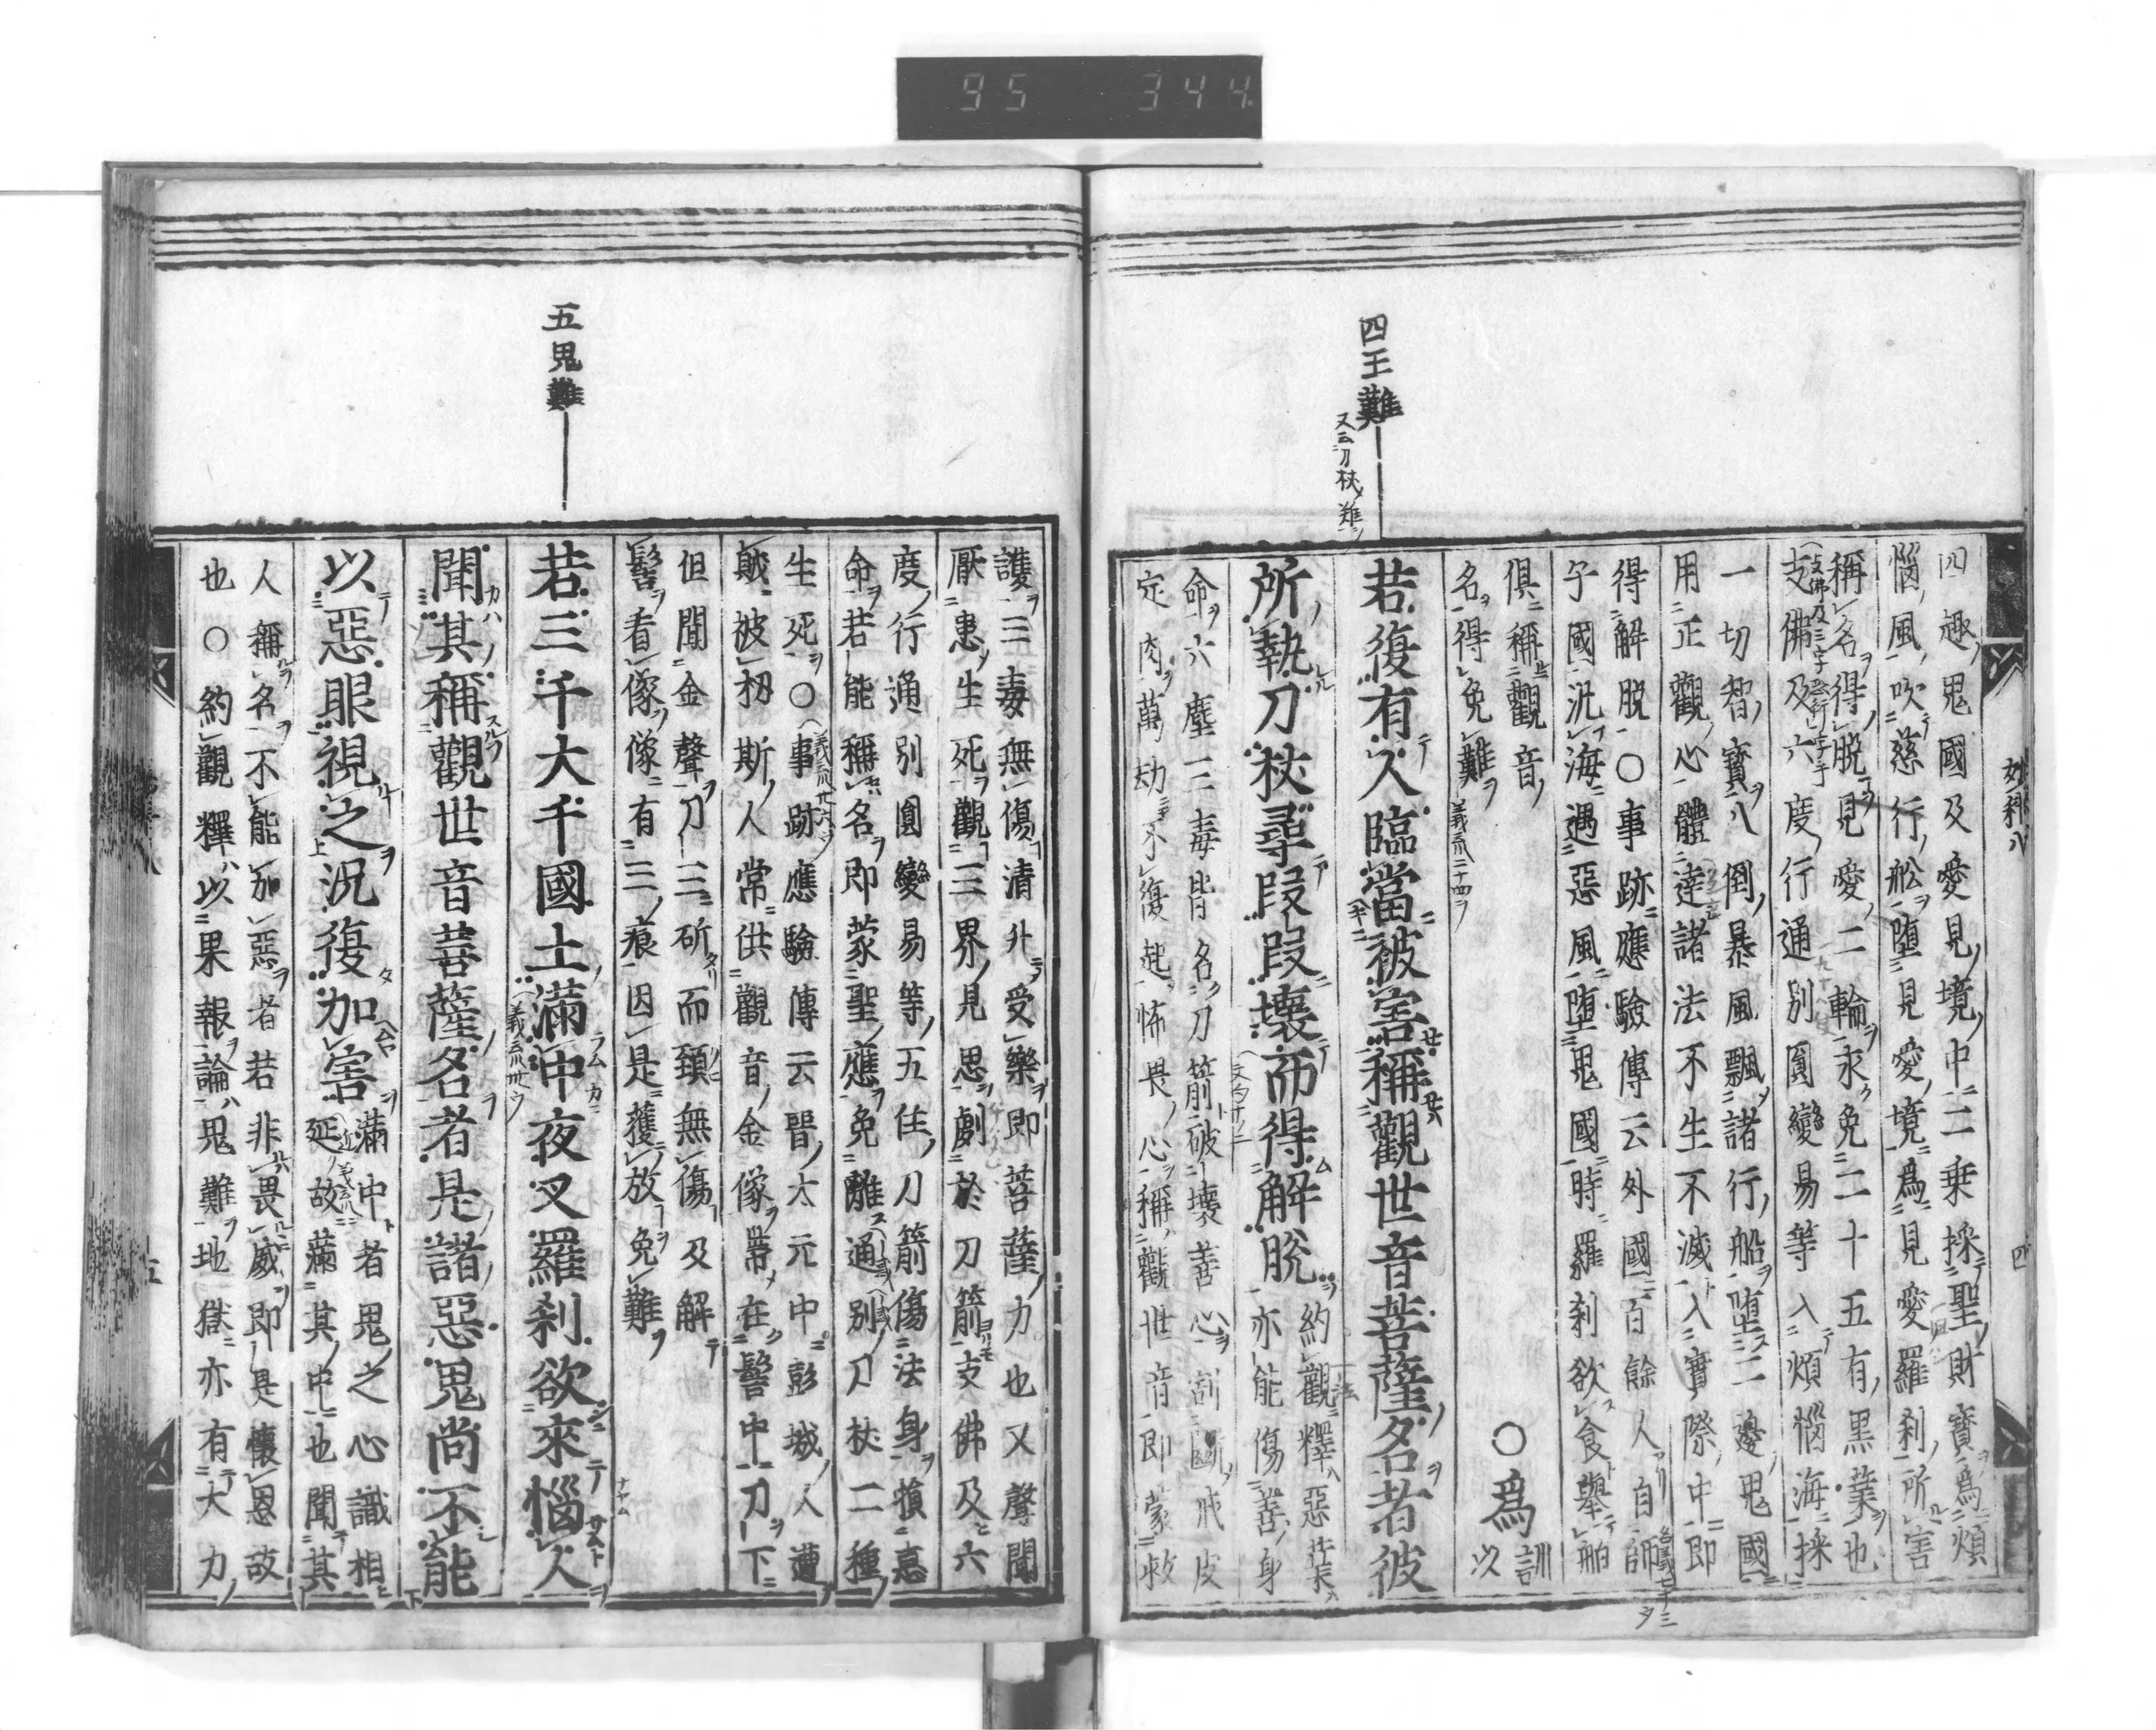 95 344
四王難
又云刀杖難
妙科八
四
四趣鬼國及愛見境中二乘採聖財寶為煩
惱風吹慈行舩堕見愛境為見愛羅刹所害
稱名得脱見愛二輪永免二十五有黒業也
支佛及六度行通別圓變易等入煩惱海採
一切智寶八倒暴風飄諸行船堕二邊鬼國
用正觀心體達諸法不生不滅入實際中即
得解脱○事跡應驗傳云外國百餘人自師
子國汎海遇惡風堕鬼國時羅刹欲食舉舶
俱稱觀音
名得免難
○為訓
以
若復有人臨當被害稱觀世音菩薩名者彼
所執刀杖尋段段壞而得解脱
約觀釋惡業
亦能傷善身
命六塵三毒皆名刀箭破壞善心割斷戒皮
定肉萬劫不復起怖畏心稱觀世音即蒙救
五鬼難
護三毒無傷清升受樂即菩薩力也又聲聞
厭患生死觀三界見思劇於刀箭支佛及六
度行通別圓變易等五住刀箭傷法身損惠
命若能稱名即蒙聖應免離通別刀杖二種
生死○事跡應驗傳云晋太元中彭城人遭
賊被初斯人常供觀音金像帶在髻中刀下
但聞金聲刀三斫而頚無傷及解
髻看像像有三痕因是獲放免難
若三千大千國土滿中夜叉羅刹欲來惱人
聞其稱觀世音菩薩名者是諸惡鬼尚不能
以惡眼視之況復加害
滿中者鬼之心識相
延故滿其中也聞其
人稱名不能加惡者若非畏威即是懐恩故
也○約觀釋以果報論鬼難地獄亦有大力
五